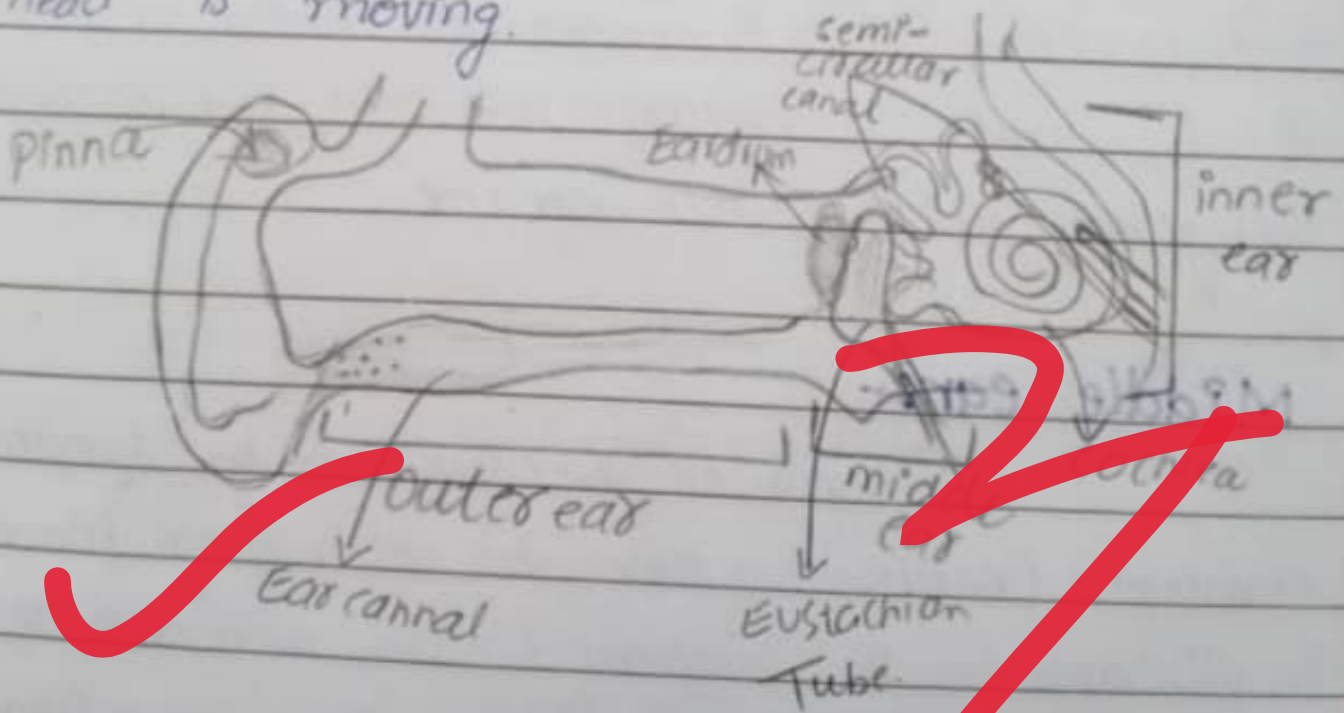 head is moving.
semi-
circular
canal
pinna
Eardrum
inner
ear
outer ear
middle
ear
cochlea
Ear cannal
Eustachian
Tube
2